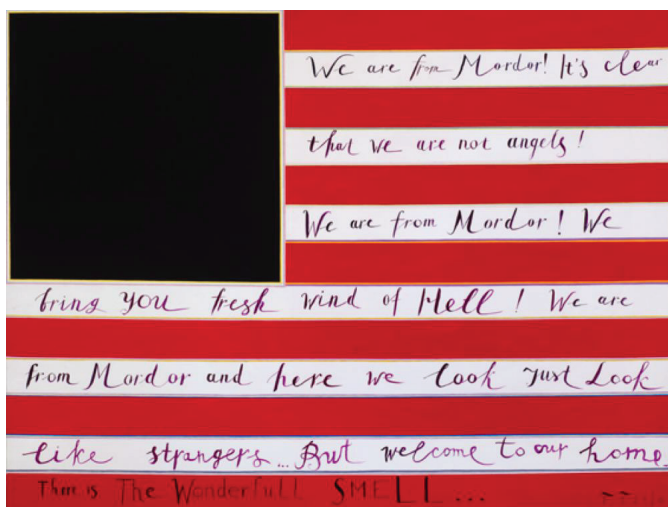 We are from Mordor! It's clear
that we are not angels!
We are from Mordor! We
bring you fresh wind of Hell! We are
from Mordor and here we look just Look
like strangers... But welcome to our home.
There is The Wonderfull SMELL...